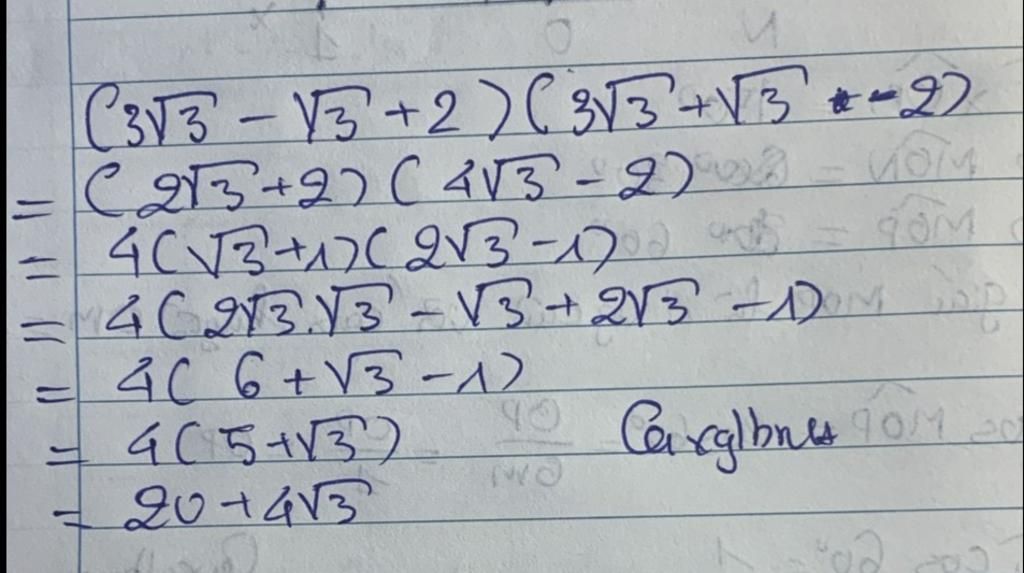 (3√3 − √3 + 2)(3√3 + √3 − 2)
= (2√3 + 2)(4√3 − 2)
= 4(√3 + 1)(2√3 − 1)
= 4(2√3.√3 − √3 + 2√3 − 1)
= 4( 6 + √3 − 1)
= 4(5 + √3)
= 20 + 4√3